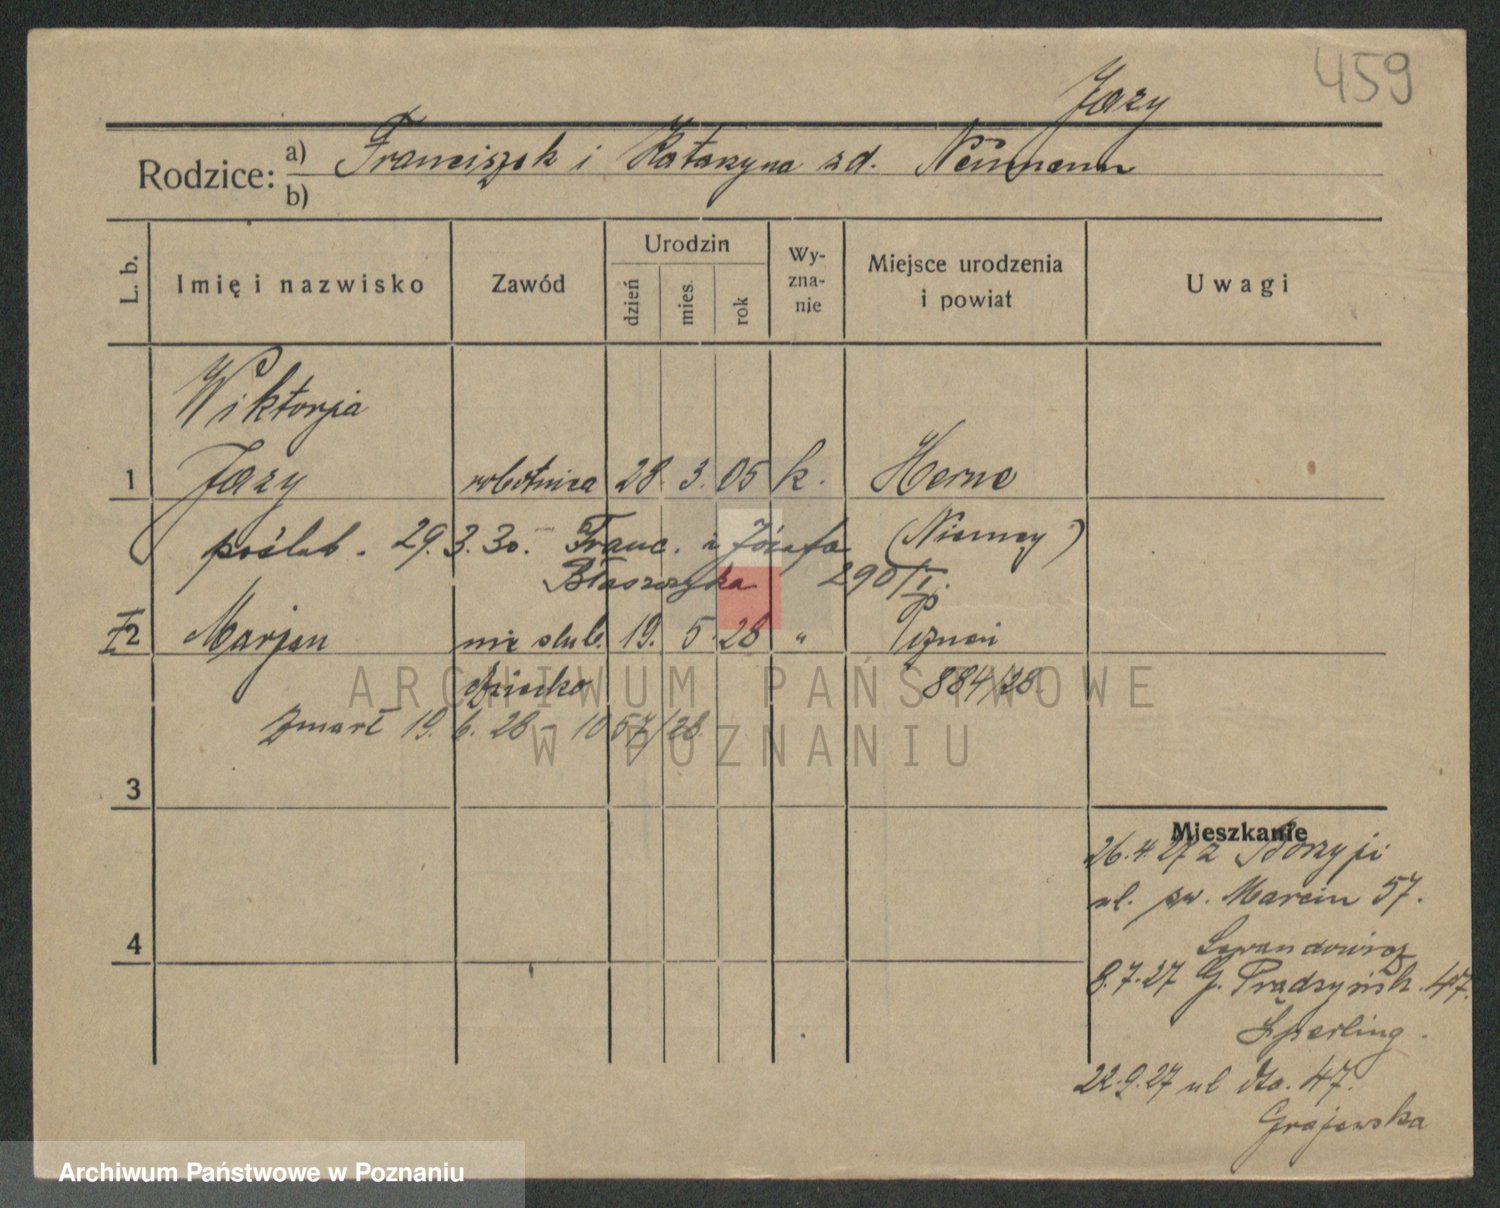 459
Jazy
Rodzice: a) Franciszek i Katarzyna zd. Neumann
b)
L. b. Imię i nazwisko Zawód Urodzin dzień mies. rok Wy-zna-nie Miejsce urodzenia i powiat Uwagi
Wiktorja
1 Jazy robotnica 28. 3. 05 k. Herne
poślub. 29.3.30. Franc. i Józefa (Niemcy)
Błaszczyka 290/I.
2 Marjan nie ślub. 19. 5. 28 " Poznań
dziecko 884/28.
Zmarł 19. 6. 28 – 1057/28
3
Mieszkanie
26.4.27 z
ul. św. Marcin 57.
4
8.7.27 G. Prądzyńsk. 47.
Sperling.
22.9.27 ul dto. 47.
Grajewska
ARCHIWUM PAŃSTWOWE
W POZNANIU
Archiwum Państwowe w Poznaniu